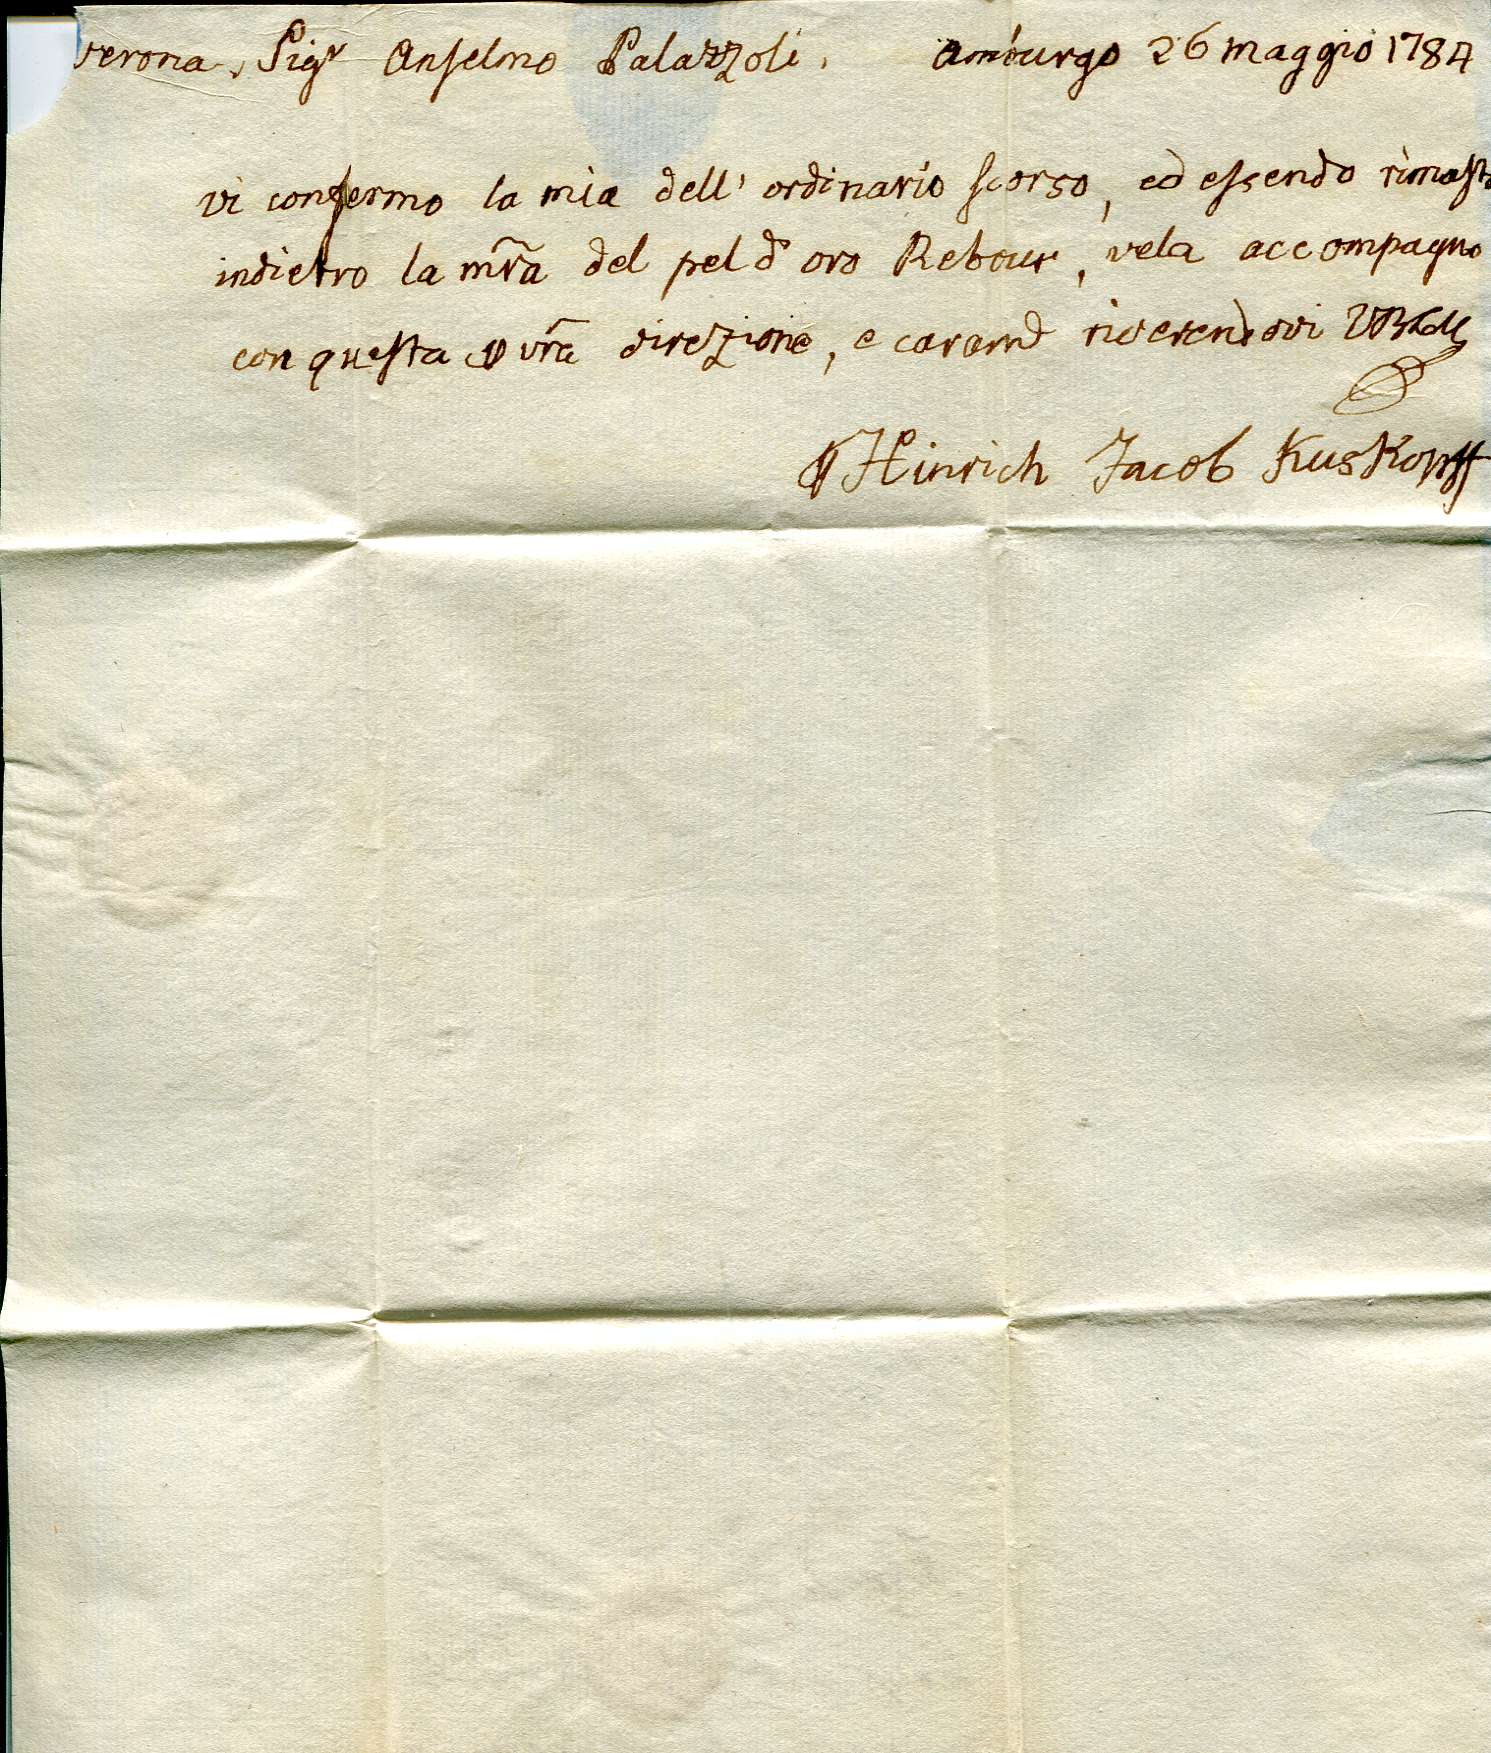 Verona. Sigr Anselmo Palazzoli. Amburgo 26 maggio 1784
vi confermo la mia dell' ordinario scorso, ed essendo rimasta
indietro la mr̃a del pel d' oro Rebour, vela accompagno
con questa p vr̃a direzione, e caramt riverendovi
p Hinrich Jacob Kuskopff